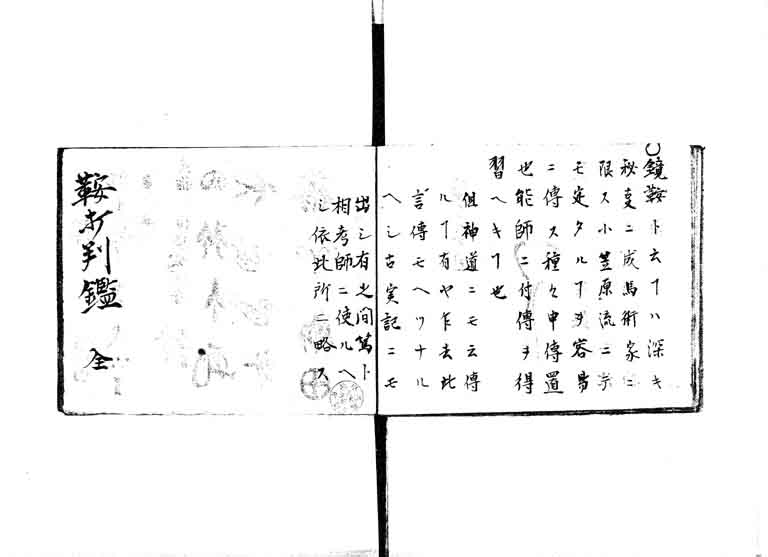 ○鏡鞍ト云ヿハ深キ
秘事ニ成馬術家ニ
限ス小笠原流ニテ
モ定タルヿヲ容易
ニ傳ス種々申傳置
也能師ニ付傳ヲ得
習ヘキヿ也
但神道ニモ云傳
ルヿ有ヤ乍去此
言傳モヘツナル
ヘシ古実記ニモ
出シ有之间篤ト
相考師ニ使ルヘ
シ依此所ニ略ス
鞍打判鑑 全